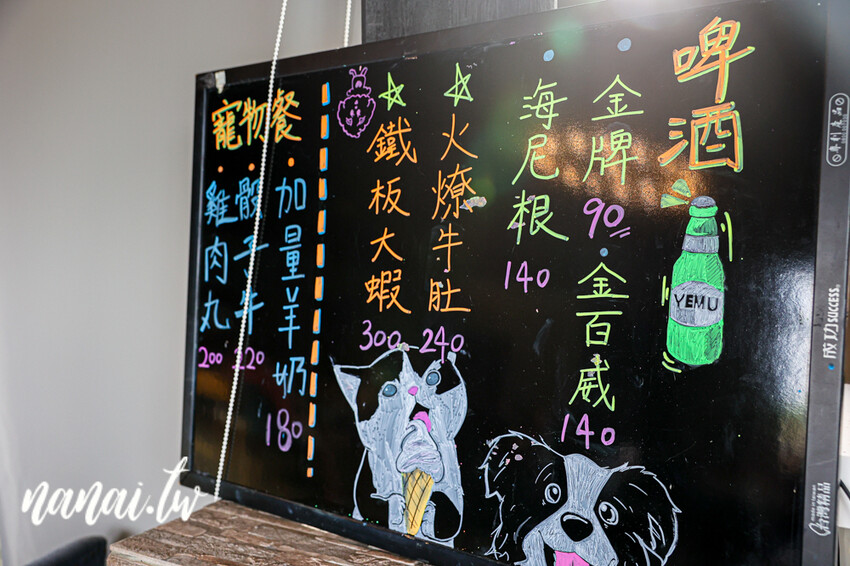 啤酒
金牌
90
金百威
140
海尼根
140
YEMU
火燎牛肚
240
鐵板大蝦
300
寵物餐
加量羊奶
180
骰子牛
220
雞肉丸
200
成功 SUCCESS.
台灣精品
nanai.tw